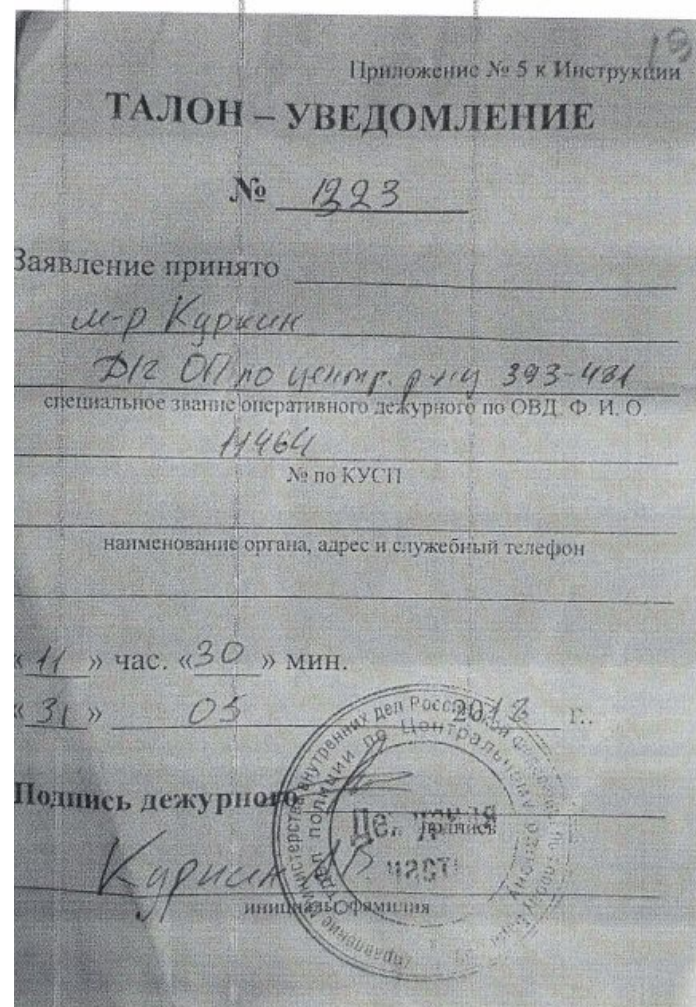 19
Приложение № 5 к Инструкции
ТАЛОН – УВЕДОМЛЕНИЕ
№ 1223
Заявление принято
м-р Куркин
Д/г ОП по центр. р-ну 393-431
специальное звание оперативного дежурного по ОВД, Ф. И. О.
11464
№ по КУСП
наименование органа, адрес и служебный телефон
« 11 » час. «30» мин.
« 31 » 05 2013 г..
Подпись дежурного
подпись
Куркин АВ
инициалы, фамилия
Управление Министерства внутренних дел Российской Федерации по городу
Отдел полиции по Центральному району
Дежурная
часть